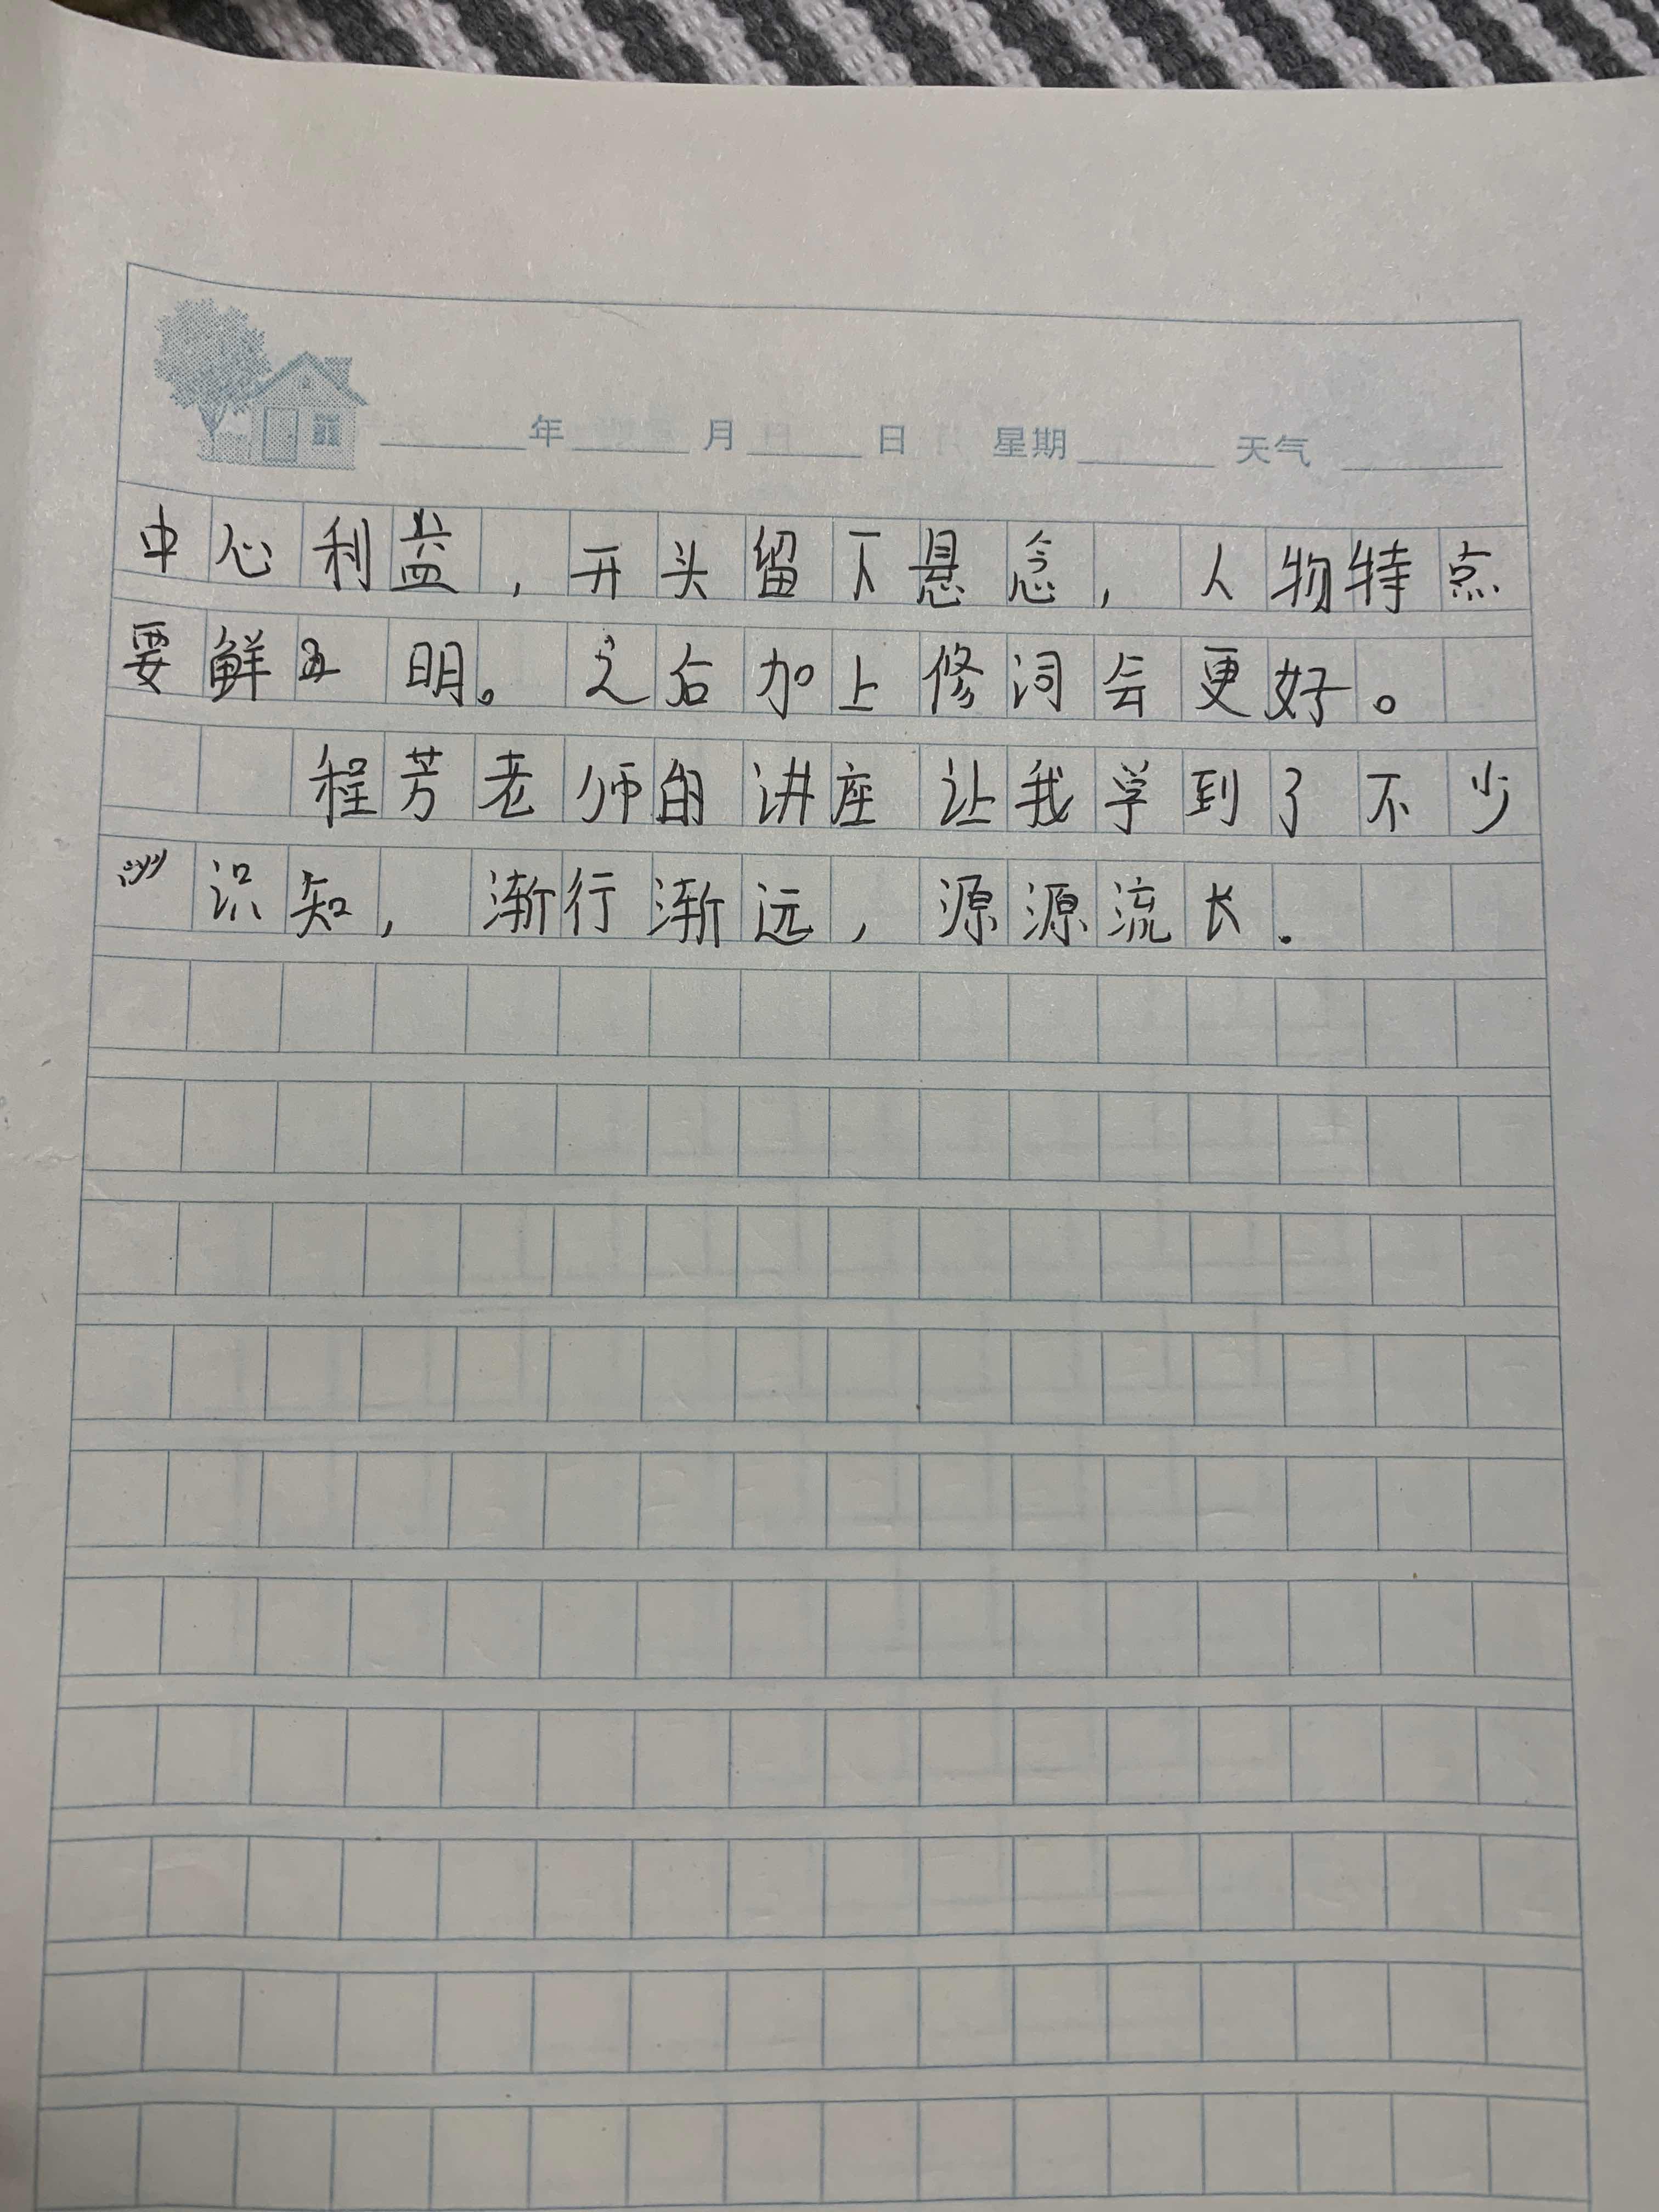 年 月 日 星期 天气
中心利益，开头留下悬念，人物特点
要鲜明。之后加上修词会更好。
程芳老师的讲座让我学到了不少
识知，渐行渐远，源源流长.